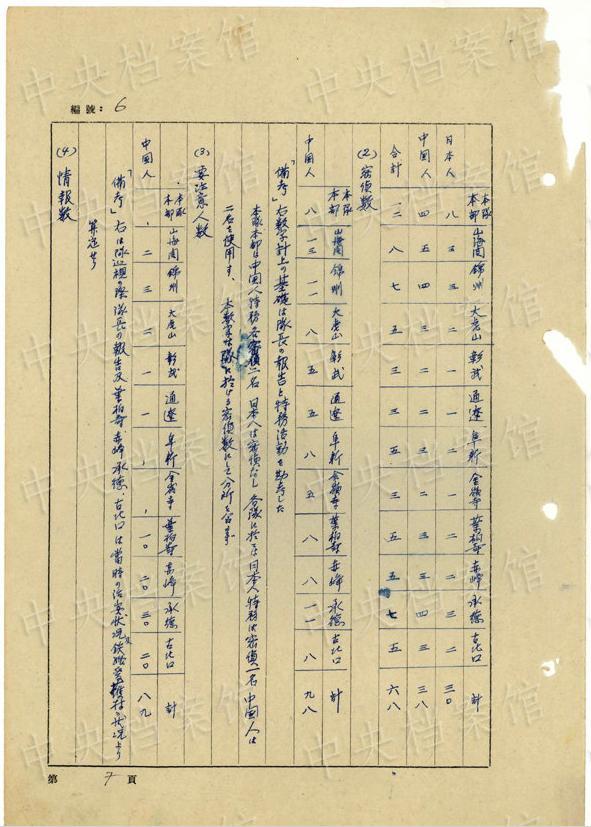 編號：6
本隊本部 山海関 錦州 大虎山 彰武 通遼 阜新 金嶺寺 葉柏寿 赤峰 承徳 古北口 計
日本人 八 三 三 二 一 一 二 一 二 二 三 二 三〇
中国人 四 五 四 三 二 二 三 二 三 三 四 三 三八
合計 一二 八 七 五 三 三 五 三 五 五 七 五 六八
(2) 密偵数
本隊本部 山海関 錦州 大虎山 彰武 通遼 阜新 金嶺寺 葉柏寿 赤峰 承徳 古北口 計
中国人 八 一三 一一 八 五 五 八 五 八 八 一一 八 九八
「備考」右数字計上の基礎は隊長の報告と特務活動を勘考した
本隊本部は中国人特務各密偵二名 日本人は密偵なし 各隊に於ては日本人特務は密偵一名 中国人は
二名を使用す、 本数字は隊に於ける密偵数にして分所を含まず
(3) 要注意人数
本隊本部 山海関 錦州 大虎山 彰武 通遼 阜新 金嶺寺 葉柏寿 赤峰 承徳 古北口 計
中国人 、 二 三 二 一 一 、 、 一〇 二〇 三〇 二〇 八九
「備考」右は隊巡視の際隊長の報告及葉柏寿、赤峰、承徳、古北口は當時の治安状況及鉄路愛護村の状況より
算定せり
(4) 情報数
第 7 頁
中央档案馆